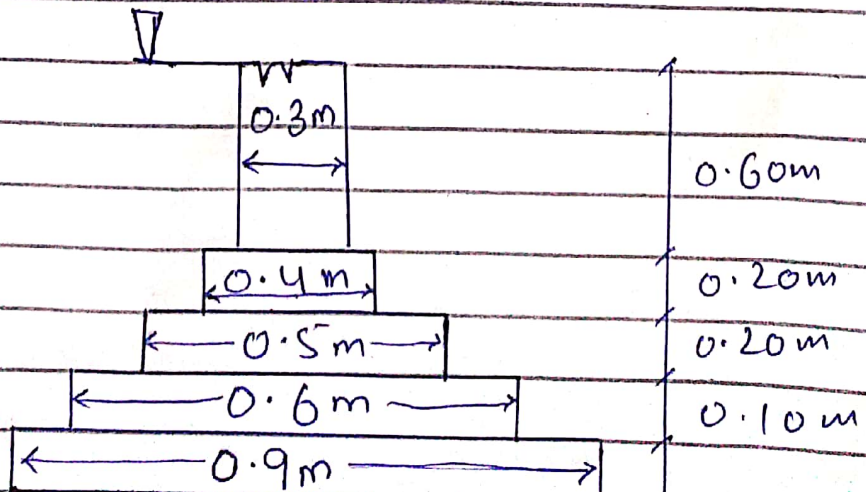 0.3m
0.60m
0.4m
0.20m
0.5m
0.20m
0.6m
0.10m
0.9m